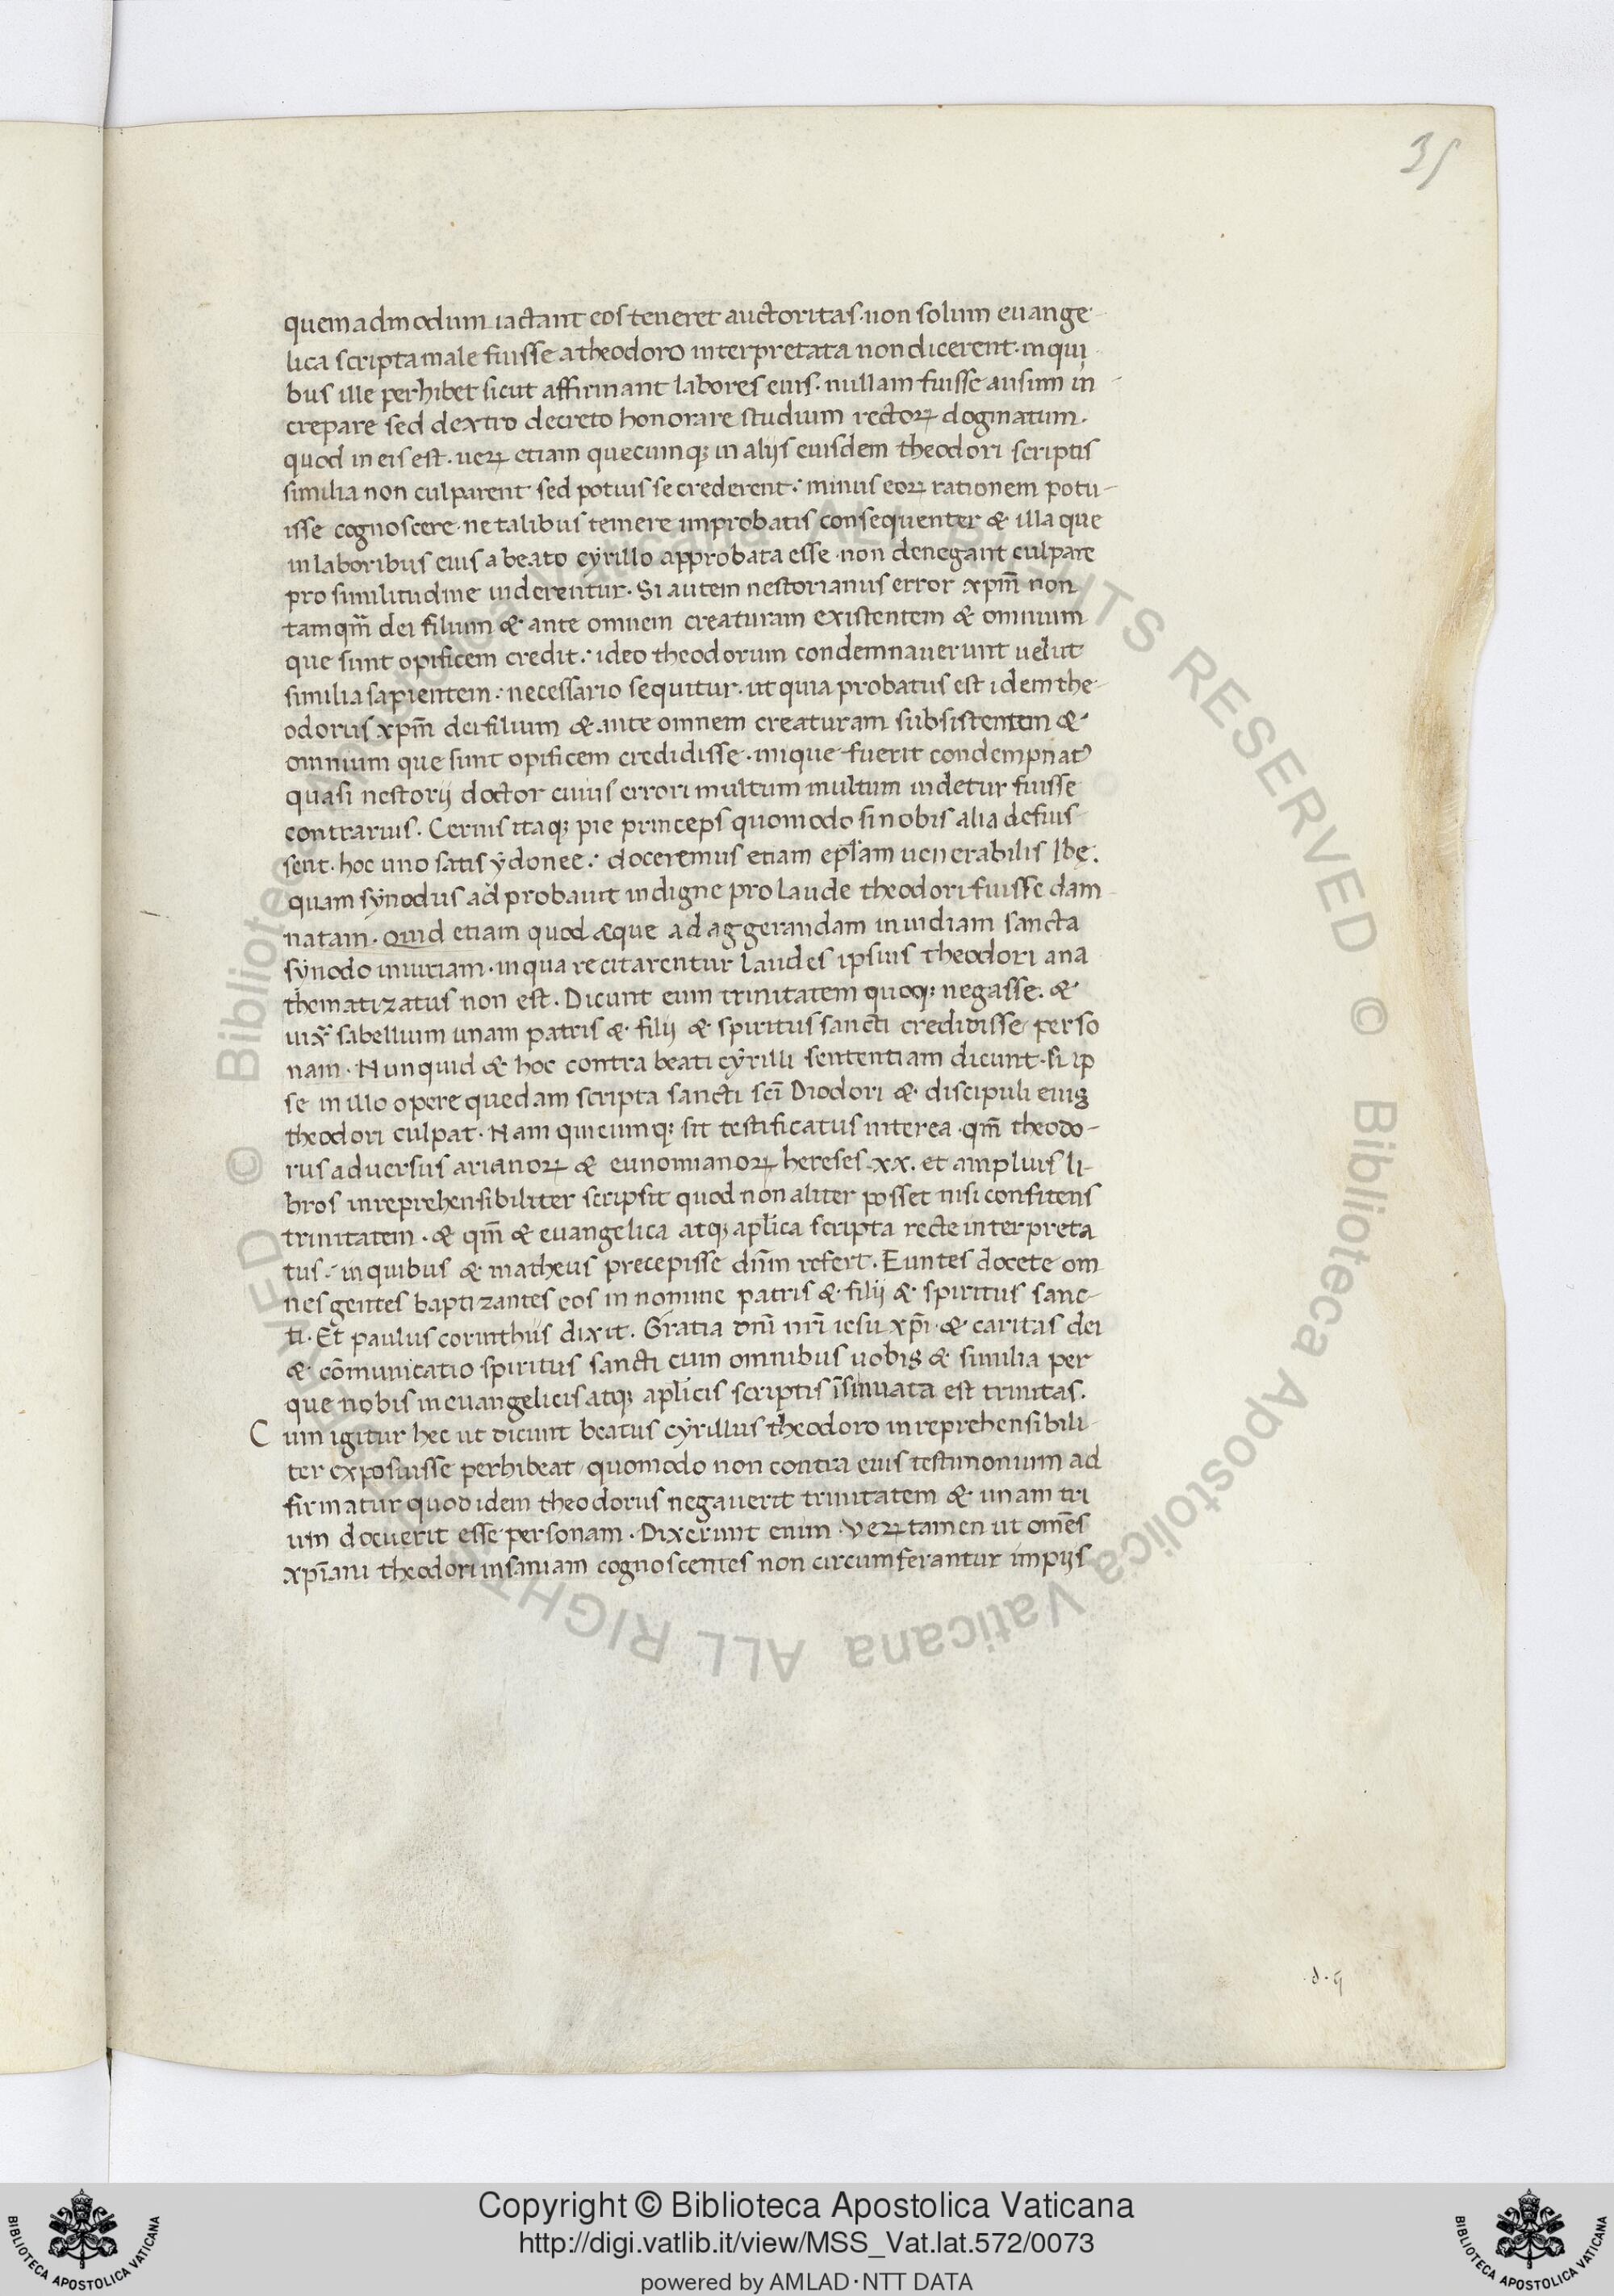 35
quemadmodum iactant eos teneret auctoritas·non solum euange-
lica scripta male fuisse a theodoro interpretata non dicerent·in qui
bus ille perhibet sicut affirmant labores eius·nullam fuisse ausum in-
crepare sed dextro decreto honorare studium rectoꝝ dogmatum.
quod in eis est·ueꝝ etiam quecumqꝫ in alijs eiusdem theodori scriptis
similia non culparent sed potius se crederent: minus eoꝝ rationem potu-
isse cognoscere·ne talibus temere improbatis consequenter & illa que
in laboribus eius a beato cyrillo approbata esse·non denegant culpare
pro similitudine uiderentur. Si autem nestorianus error xp̄m non
tamqm̄ dei filium & ante omnem creaturam existentem & omnium
que sunt opificem credit: ideo theodorum condemnauerunt uelut
similia sapientem: necessario sequitur·ut quia probatus est idem the-
odorus xp̄m dei filium & ante omnem creaturam subsistentem &
omnium que sunt opificem credidisse·inique fuerit condempnatꝰ
quasi nestorij doctor cuius errori multum multum uidetur fuisse
contrarius. Cernis itaqꝫ pie princeps quomodo si nobis alia defuis-
sent·hoc uno satis ydonee: doceremus etiam ep̄lam uenerabilis Ibę.
quam synodus adprobauit indigne pro laude theodori fuisse dam
natam. Quid etiam quod æque ad aggerandam inuidiam sancta
synodo iniuriam·in qua recitarentur laudes ipsius theodori ana
thematizatus non est. Dicunt eum trinitatem quoqꝫ negasse. &
iux̄ sabellium unam patris & filij & spiritus sancti credidisse perso
nam. Nunquid & hoc contra beati cyrilli sententiam dicunt·si ip
se in illo opere quedam scripta sancti sc̄i Diodori & discipuli eiuꝰ
theodori culpat. Nam quicumqꝫ sit testificatus interea·qm̄ theodo-
rus aduersus arianoꝝ & eunomianoꝝ hereses·xx. et amplius li-
bros inreprehensibiliter scripsit quod non aliter posset nisi confitens
trinitatem·& qm̄ & euangelica atqꝫ aplica scripta recte interpreta
tus: in quibus & matheus precepisse dn̄m refert. Euntes docete om
nes gentes baptizantes eos in nomine patris & filij & spiritus sanc-
ti. Et paulus corinthiis dixit. Gratia dn̄i nr̄i iesu xp̄i & caritas dei
& cōmunicatio spiritus sancti cum omnibus uobis & similia per
que nobis in euangelicis atqꝫ aplicis scriptis īsinuata est trinitas.
Cum igitur hec ut dicunt beatus cyrillus theodoro inreprehensibili-
ter exposuisse perhibeat quomodo non contra eius testimonium ad
firmatur quod idem theodorus negauerit trinitatem & unam tri
um docuerit esse personam. Dixerunt enim·Veꝝtamen ut om̄es
xp̄iani theodori insaniam cognoscentes non circumferantur impijs
Copyright © Biblioteca Apostolica Vaticana
http://digi.vatlib.it/view/MSS_Vat.lat.572/0073
powered by AMLAD·NTT DATA
BIBLIOTECA APOSTOLICA VATICANA
BIBLIOTECA APOSTOLICA VATICANA
© Biblioteca Apostolica Vaticana ALL RIGHTS RESERVED © Biblioteca Apostolica Vaticana ALL RIGHTS RESERVED